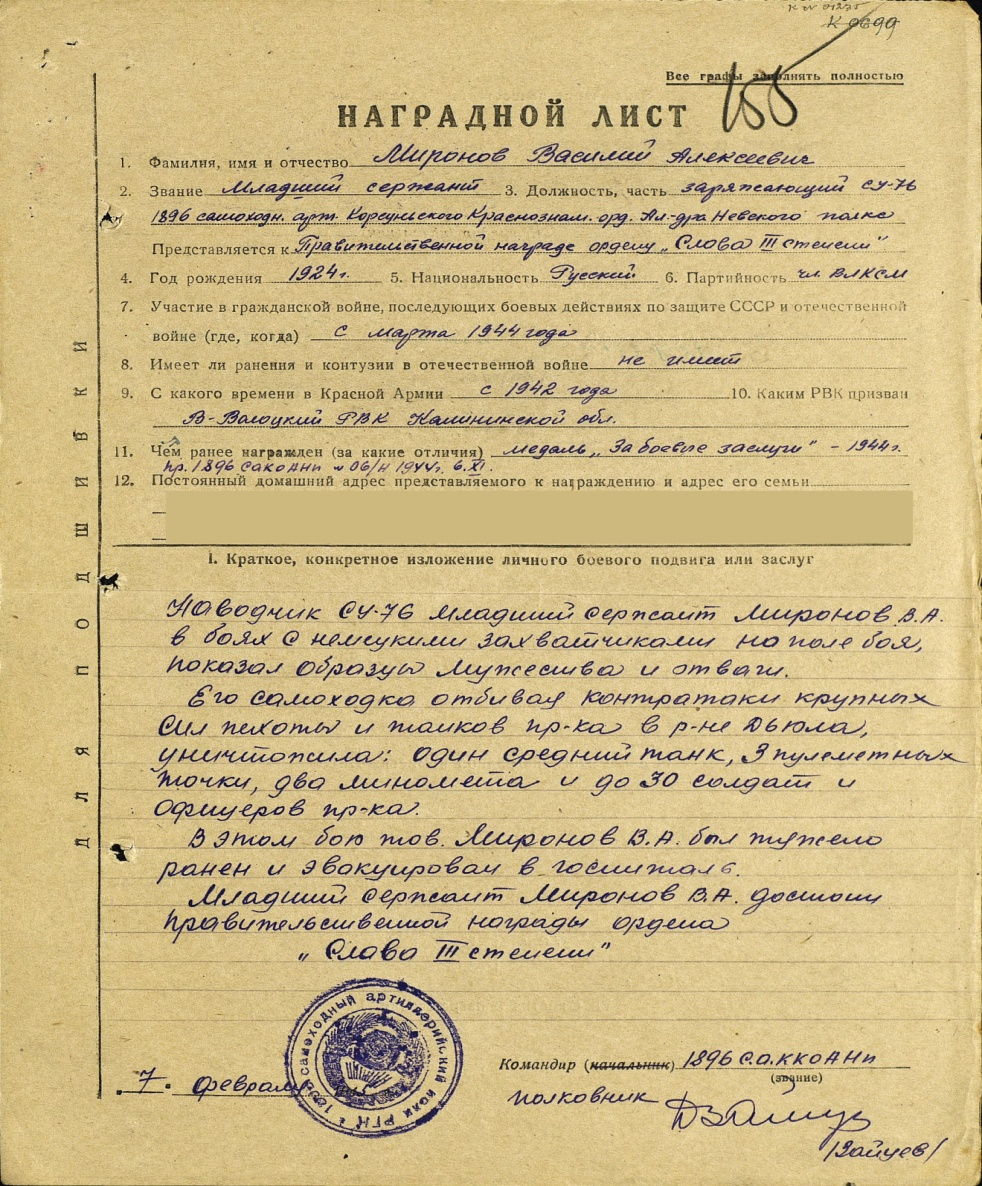 К 0699
Все графы заполнять полностью
155
НАГРАДНОЙ ЛИСТ
1. Фамилия, имя и отчество Миронов Василий Алексеевич
2. Звание Младший сержант 3. Должность, часть заряжающий СУ-76
1896 самоходн. арт. Корсуньского Краснознам. орд. Ал-дра Невского полка
Представляется к Правительственной награде ордену „Слава III степени"
4. Год рождения 1924г. 5. Национальность Русский 6. Партийность чл. ВЛКСМ
7. Участие в гражданской войне, последующих боевых действиях по защите СССР и отечественной
войне (где, когда) с марта 1944 года
8. Имеет ли ранения и контузии в отечественной войне не имеет
9. С какого времени в Красной Армии с 1942 года 10. Каким РВК призван
В-Волоцкий РВК Калининской обл.
11. Чем ранее награжден (за какие отличия) медаль „За боевые заслуги" - 1944г.
пр. 1896 САКОАНП № 06/н 1944г. 6.XI.
12. Постоянный домашний адрес представляемого к награждению и адрес его семьи
ДЛЯ ПОДШИВКИ
I. Краткое, конкретное изложение личного боевого подвига или заслуг
Наводчик СУ-76 Младший сержант Миронов В.А.
в боях с немецкими захватчиками на поле боя,
показал образцы мужества и отваги.
Его самоходка отбивая контратаки крупных
сил пехоты и танков пр-ка в р-не Дьюла,
уничтожила: один средний танк, 3 пулеметных
точки, два миномета и до 30 солдат и
офицеров пр-ка.
В этом бою тов. Миронов В.А. был тяжело
ранен и эвакуирован в госпиталь.
Младший сержант Миронов В.А. достоин
правительственной награды ордена
„Слава III степени"
1896 самоходный артиллерийский полк РГК
Командир (начальник) 1896 с.а.ккоАНп
(звание)
7. февраля
полковник
/Зайцев/